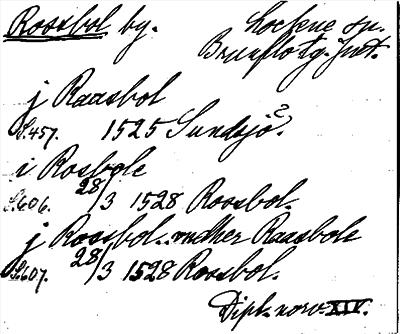 Roosbol by. Lockne sn.
Brunflo tg. Jmt.
j Raasbol
S.457. 1525 Sundsjö?
i Rosbole
S.606. 28/3 1528 Roosbol.
j Roosbol. undher Raasbole
S.607. 28/3 1528 Roosbol.
Dipl. norv. XIV.